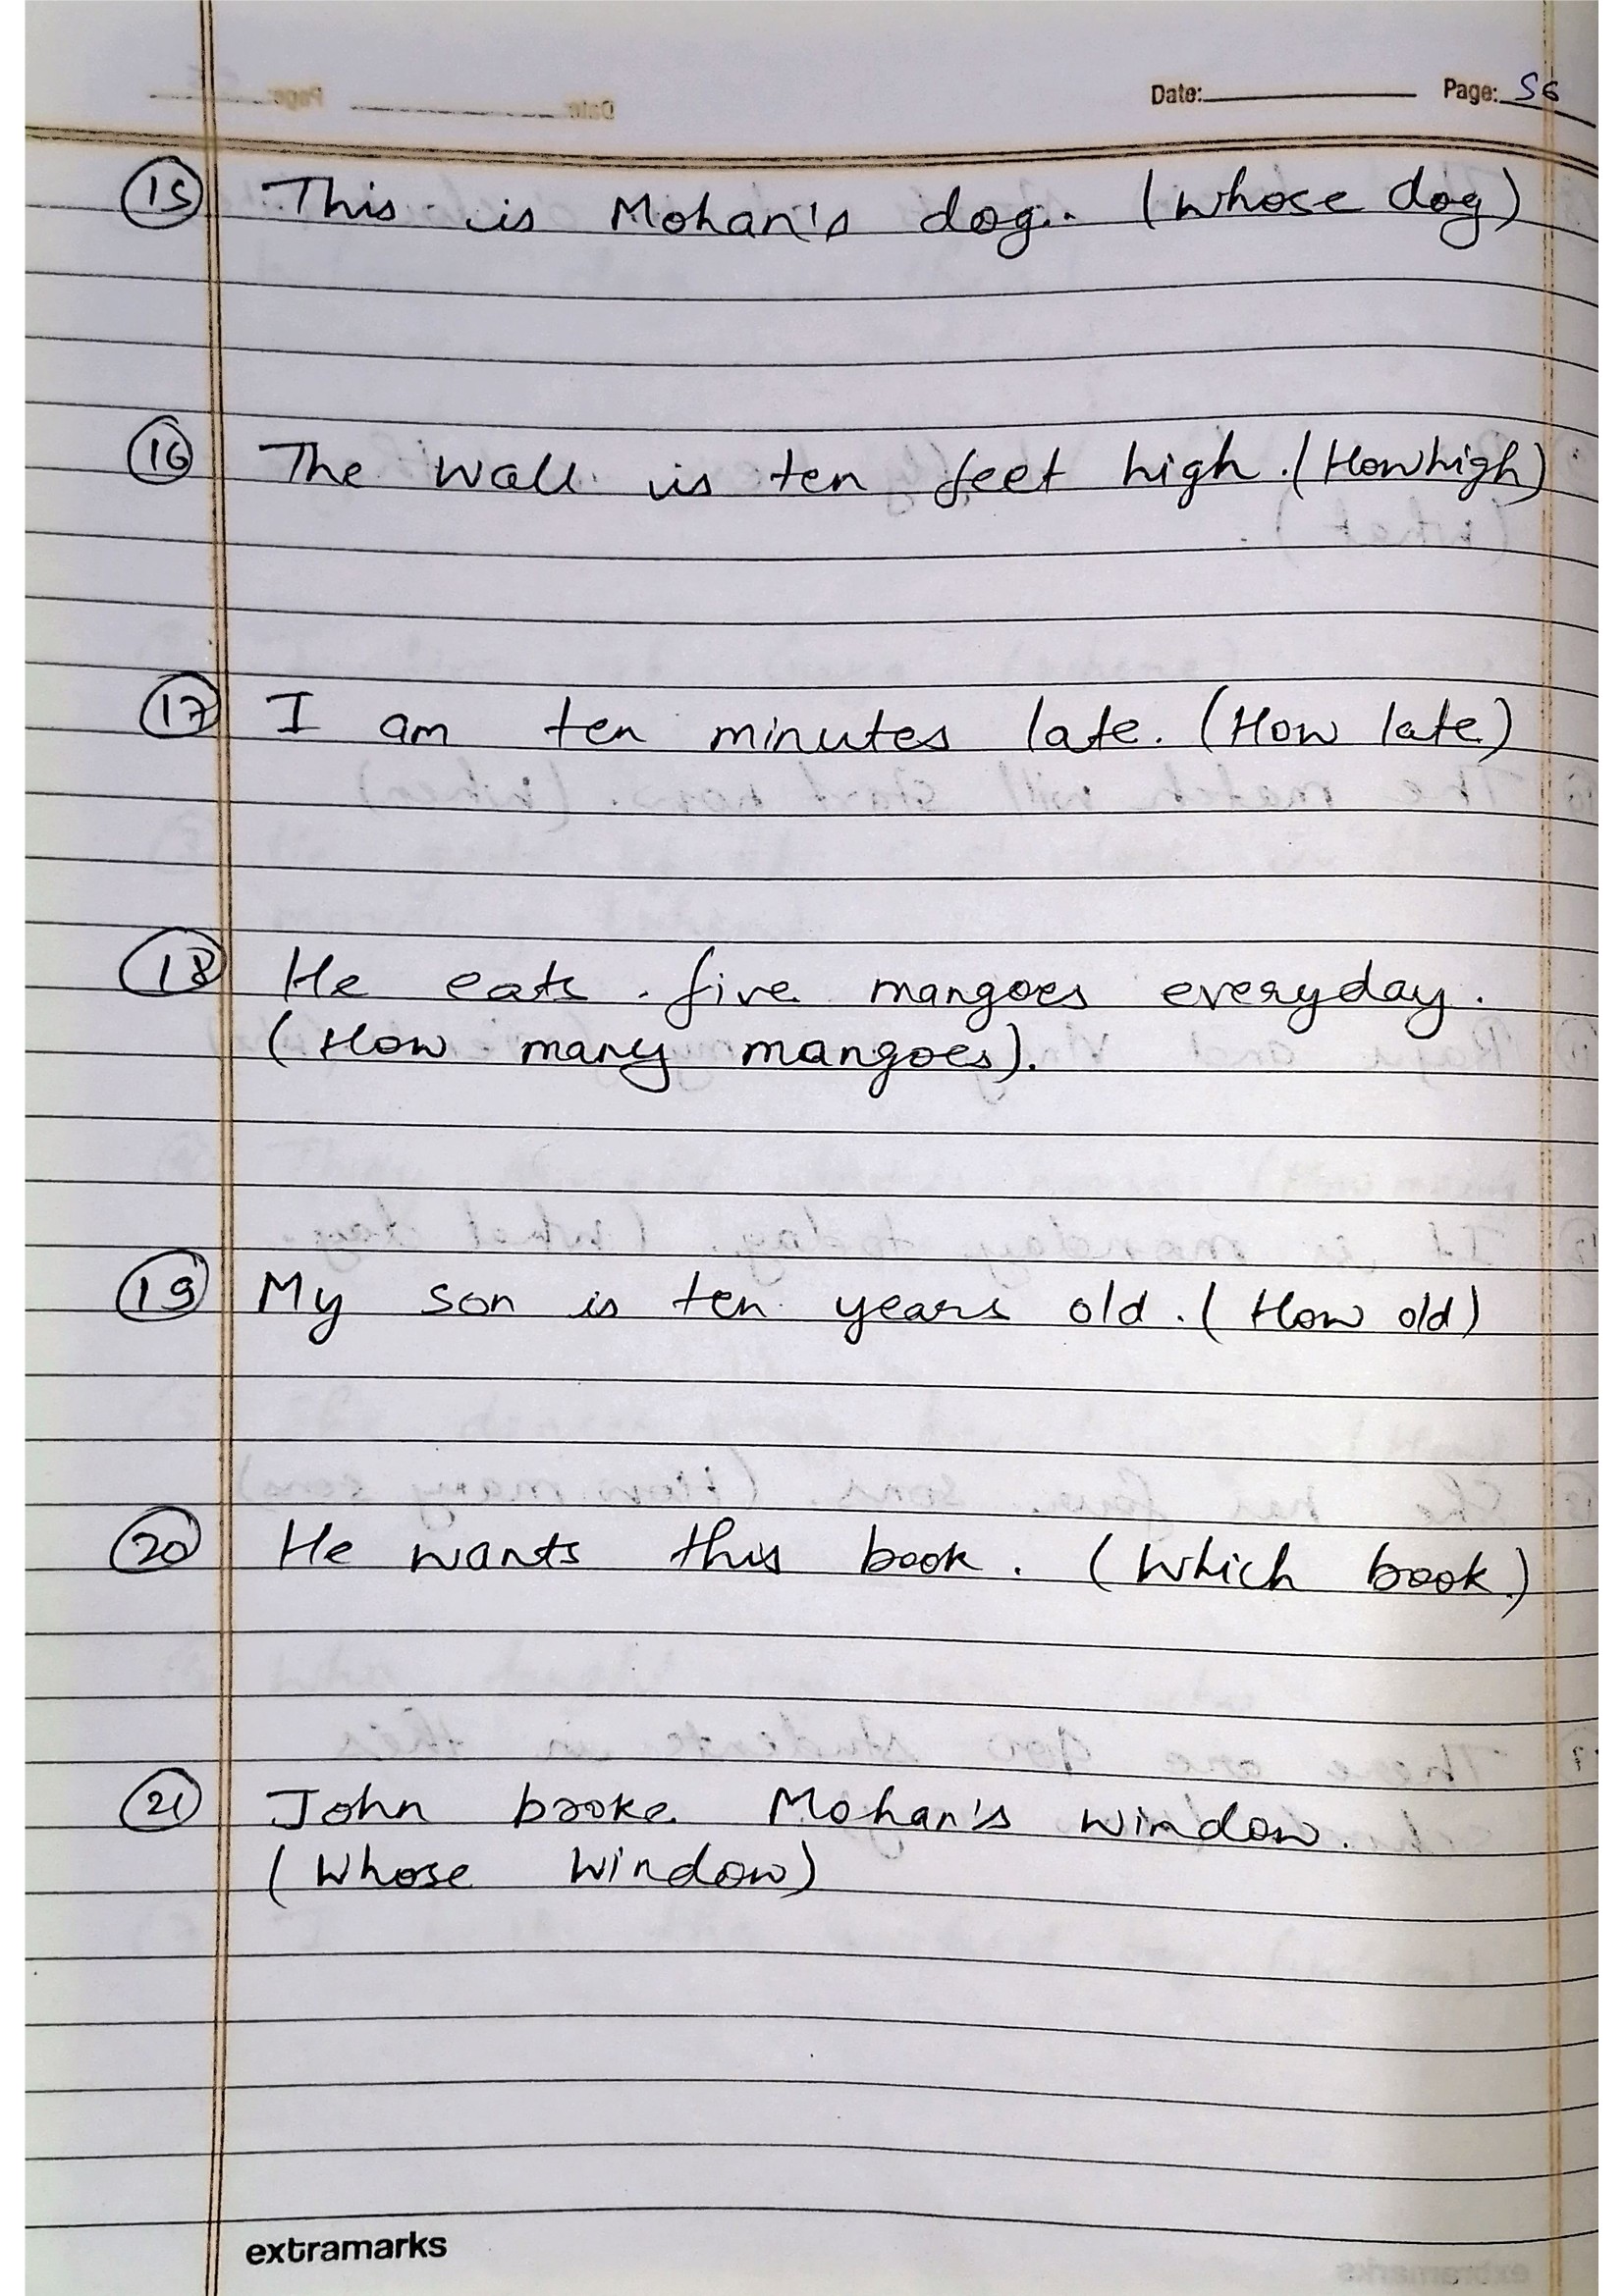 Date: Page: 56
15 This is Mohan's dog. (Whose dog)
16 The wall is ten feet high. (How high)
17 I am ten minutes late. (How late)
18 He eats five mangoes everyday.
(How many mangoes).
19 My son is ten years old. (How old)
20 He wants this book. (Which book)
21 John broke Mohan's window.
(Whose window)
extramarks